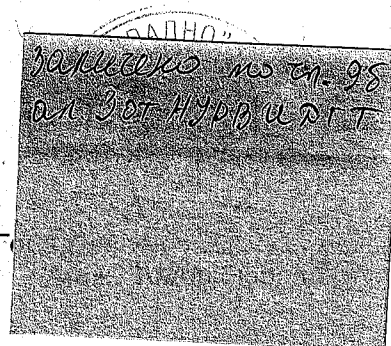 РАДНО"
заличено по чл. 98
ал. 3 от НУРВИДГТ